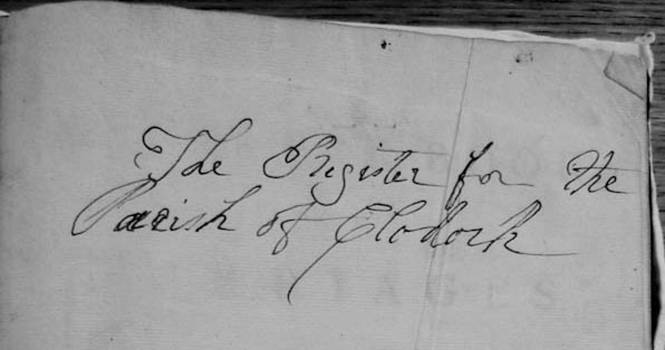 The Register for the
Parish of Clodock